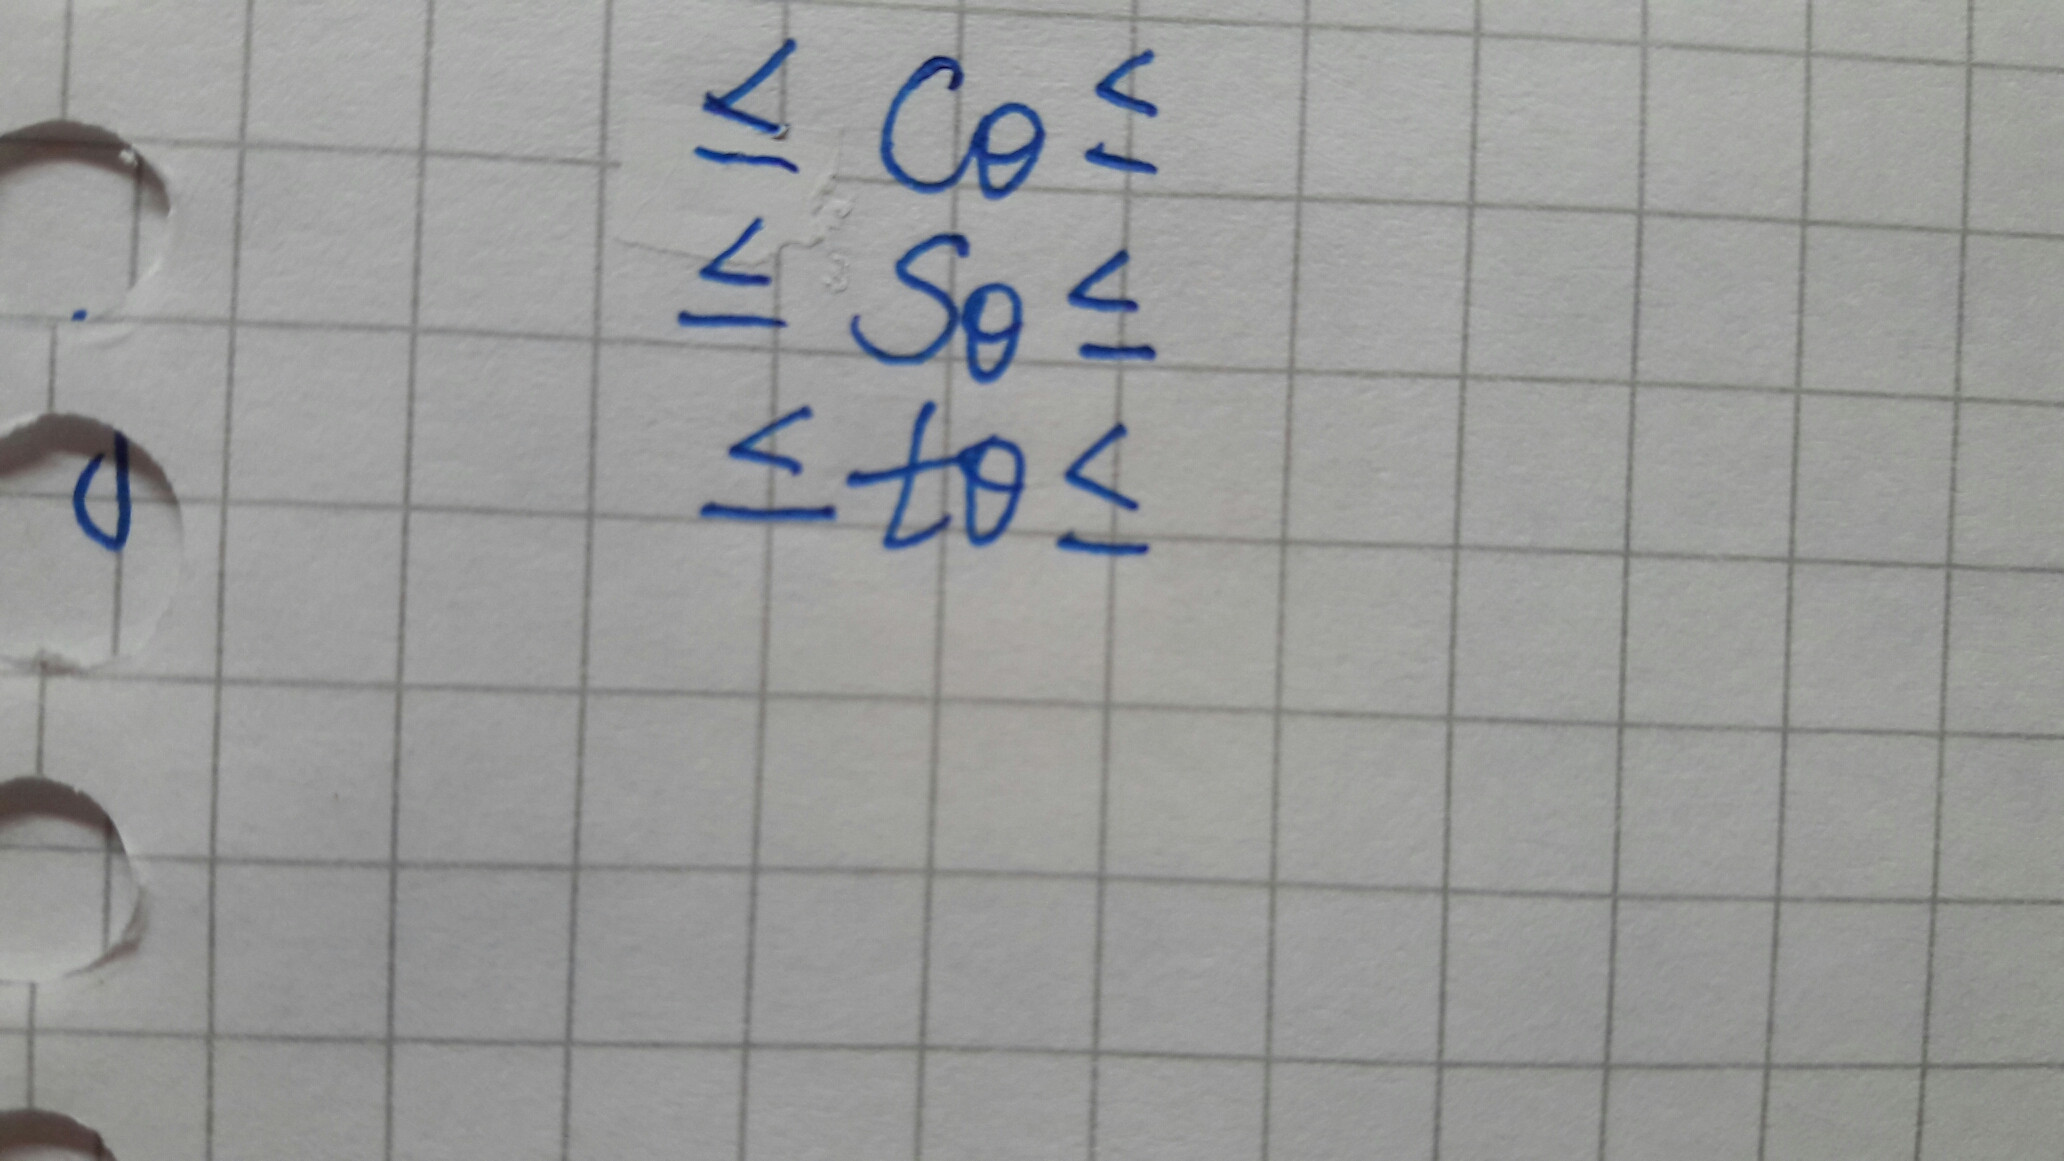 ≤ Cθ ≤
≤ Sθ ≤
≤ tθ ≤